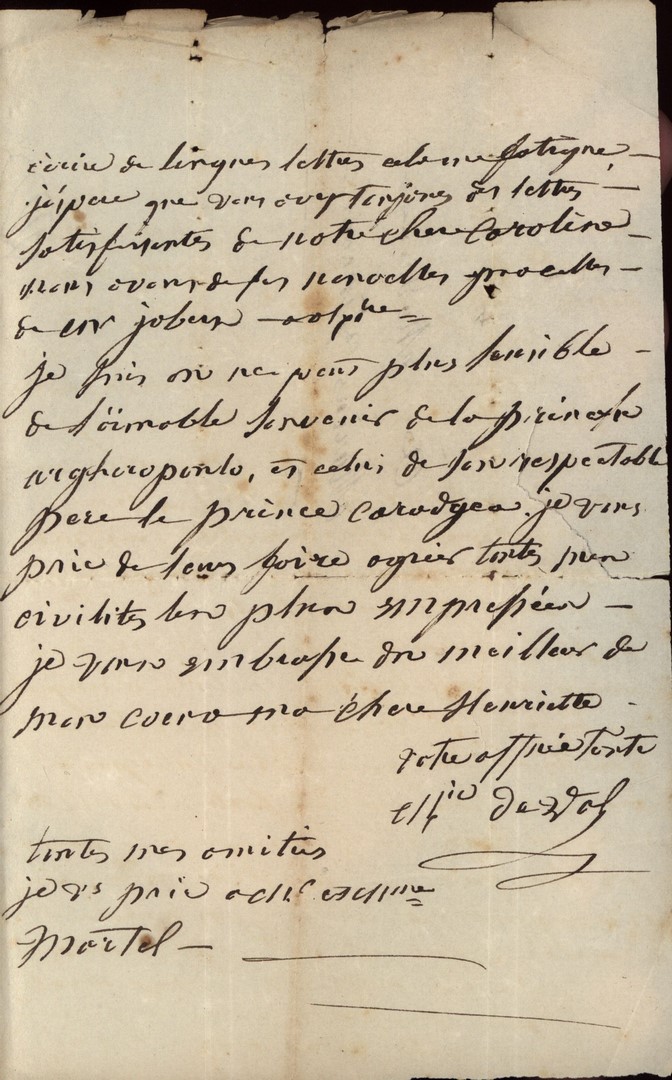 écrire de longues lettres cela me fatigue —
j'éspere que vous avez toujours des lettres —
satisfesantes de notre chere Caroline —
nous avons de ses nouvelles
de
je suis on ne peut plus sensible —
de l'aimable souvenir de la princesse
argheropoulo, et celui de son respectable
pere le prince Caradgea. je vous
prie de leur faire agreer toutes mes
civilités les plus empressées —
je vous embrasse du meilleur de
mon coeur ma chere Henriette -
votre affnée tante
toutes mes amities
je vs prie a Mr et a Mme
Martel —